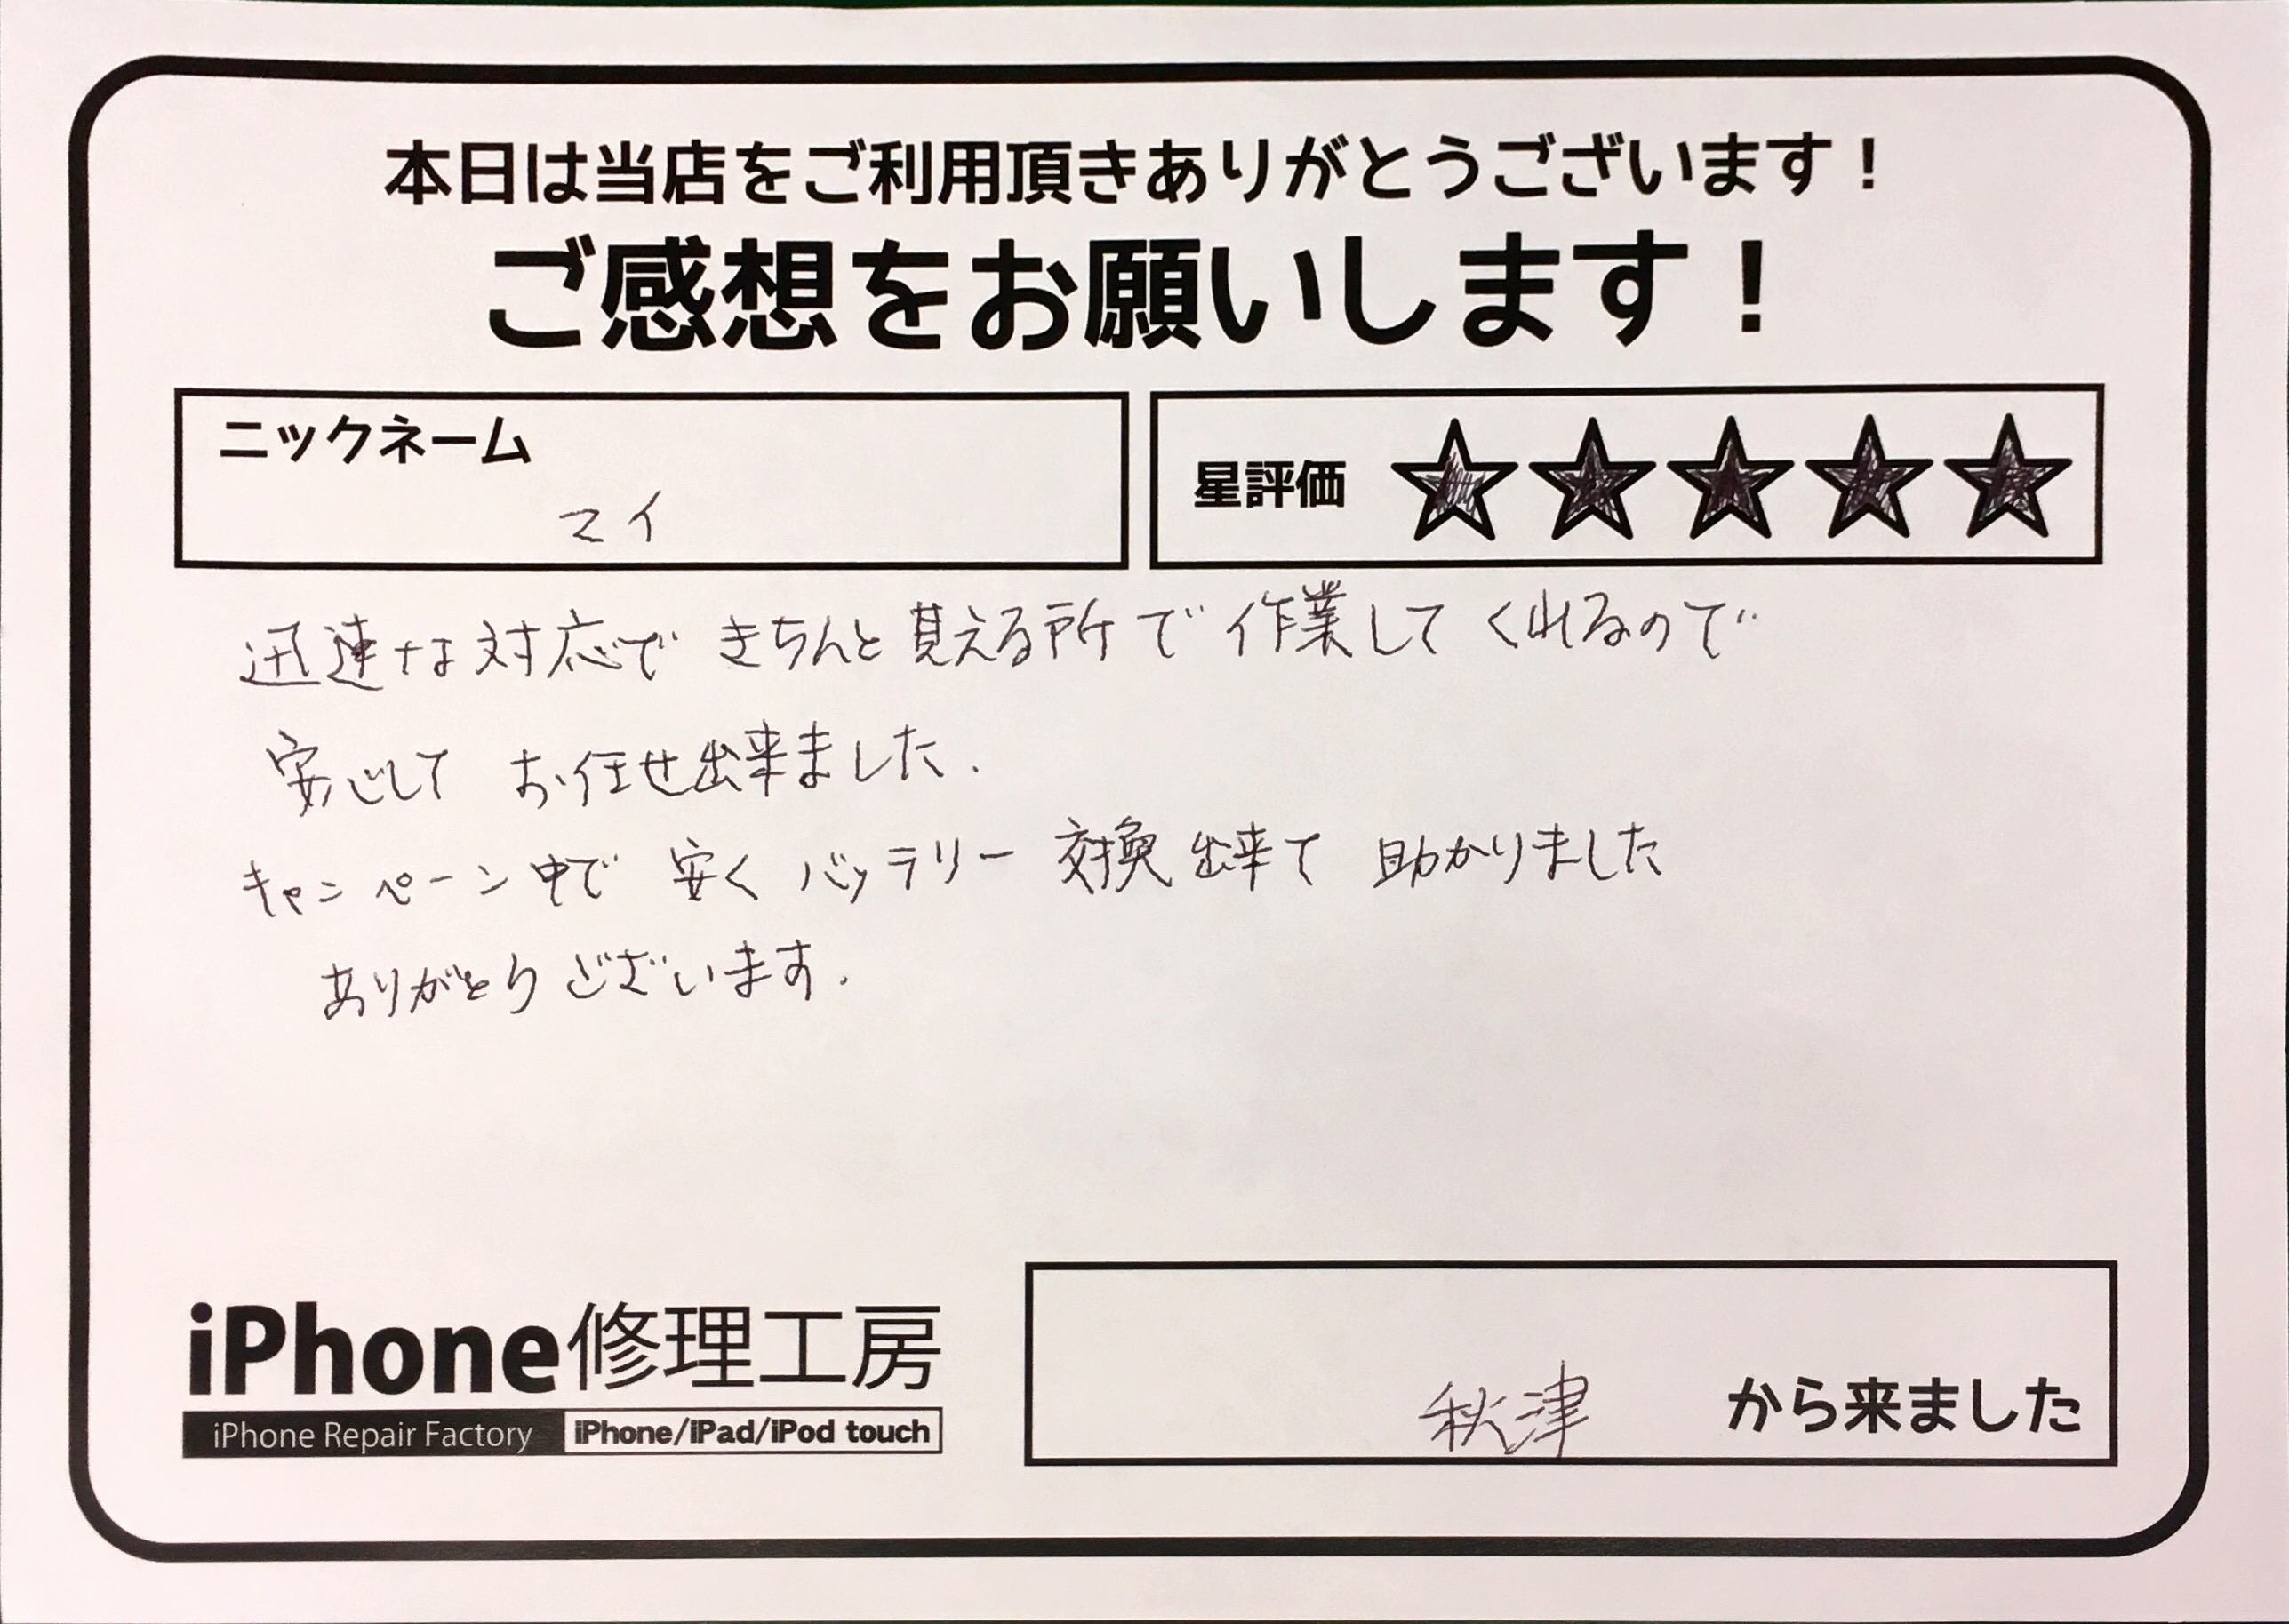 本日は当店をご利用頂きありがとうございます！
ご感想をお願いします！
ニックネーム
マイ
星評価
迅速な対応で きちんと見える所で作業してくれるので
安心して お任せ出来ました.
キャンペーン中で 安く バッテリー 交換出来て 助かりました
ありがとうございます.
iPhone修理工房
iPhone Repair Factory iPhone/iPad/iPod touch
秋津 から来ました